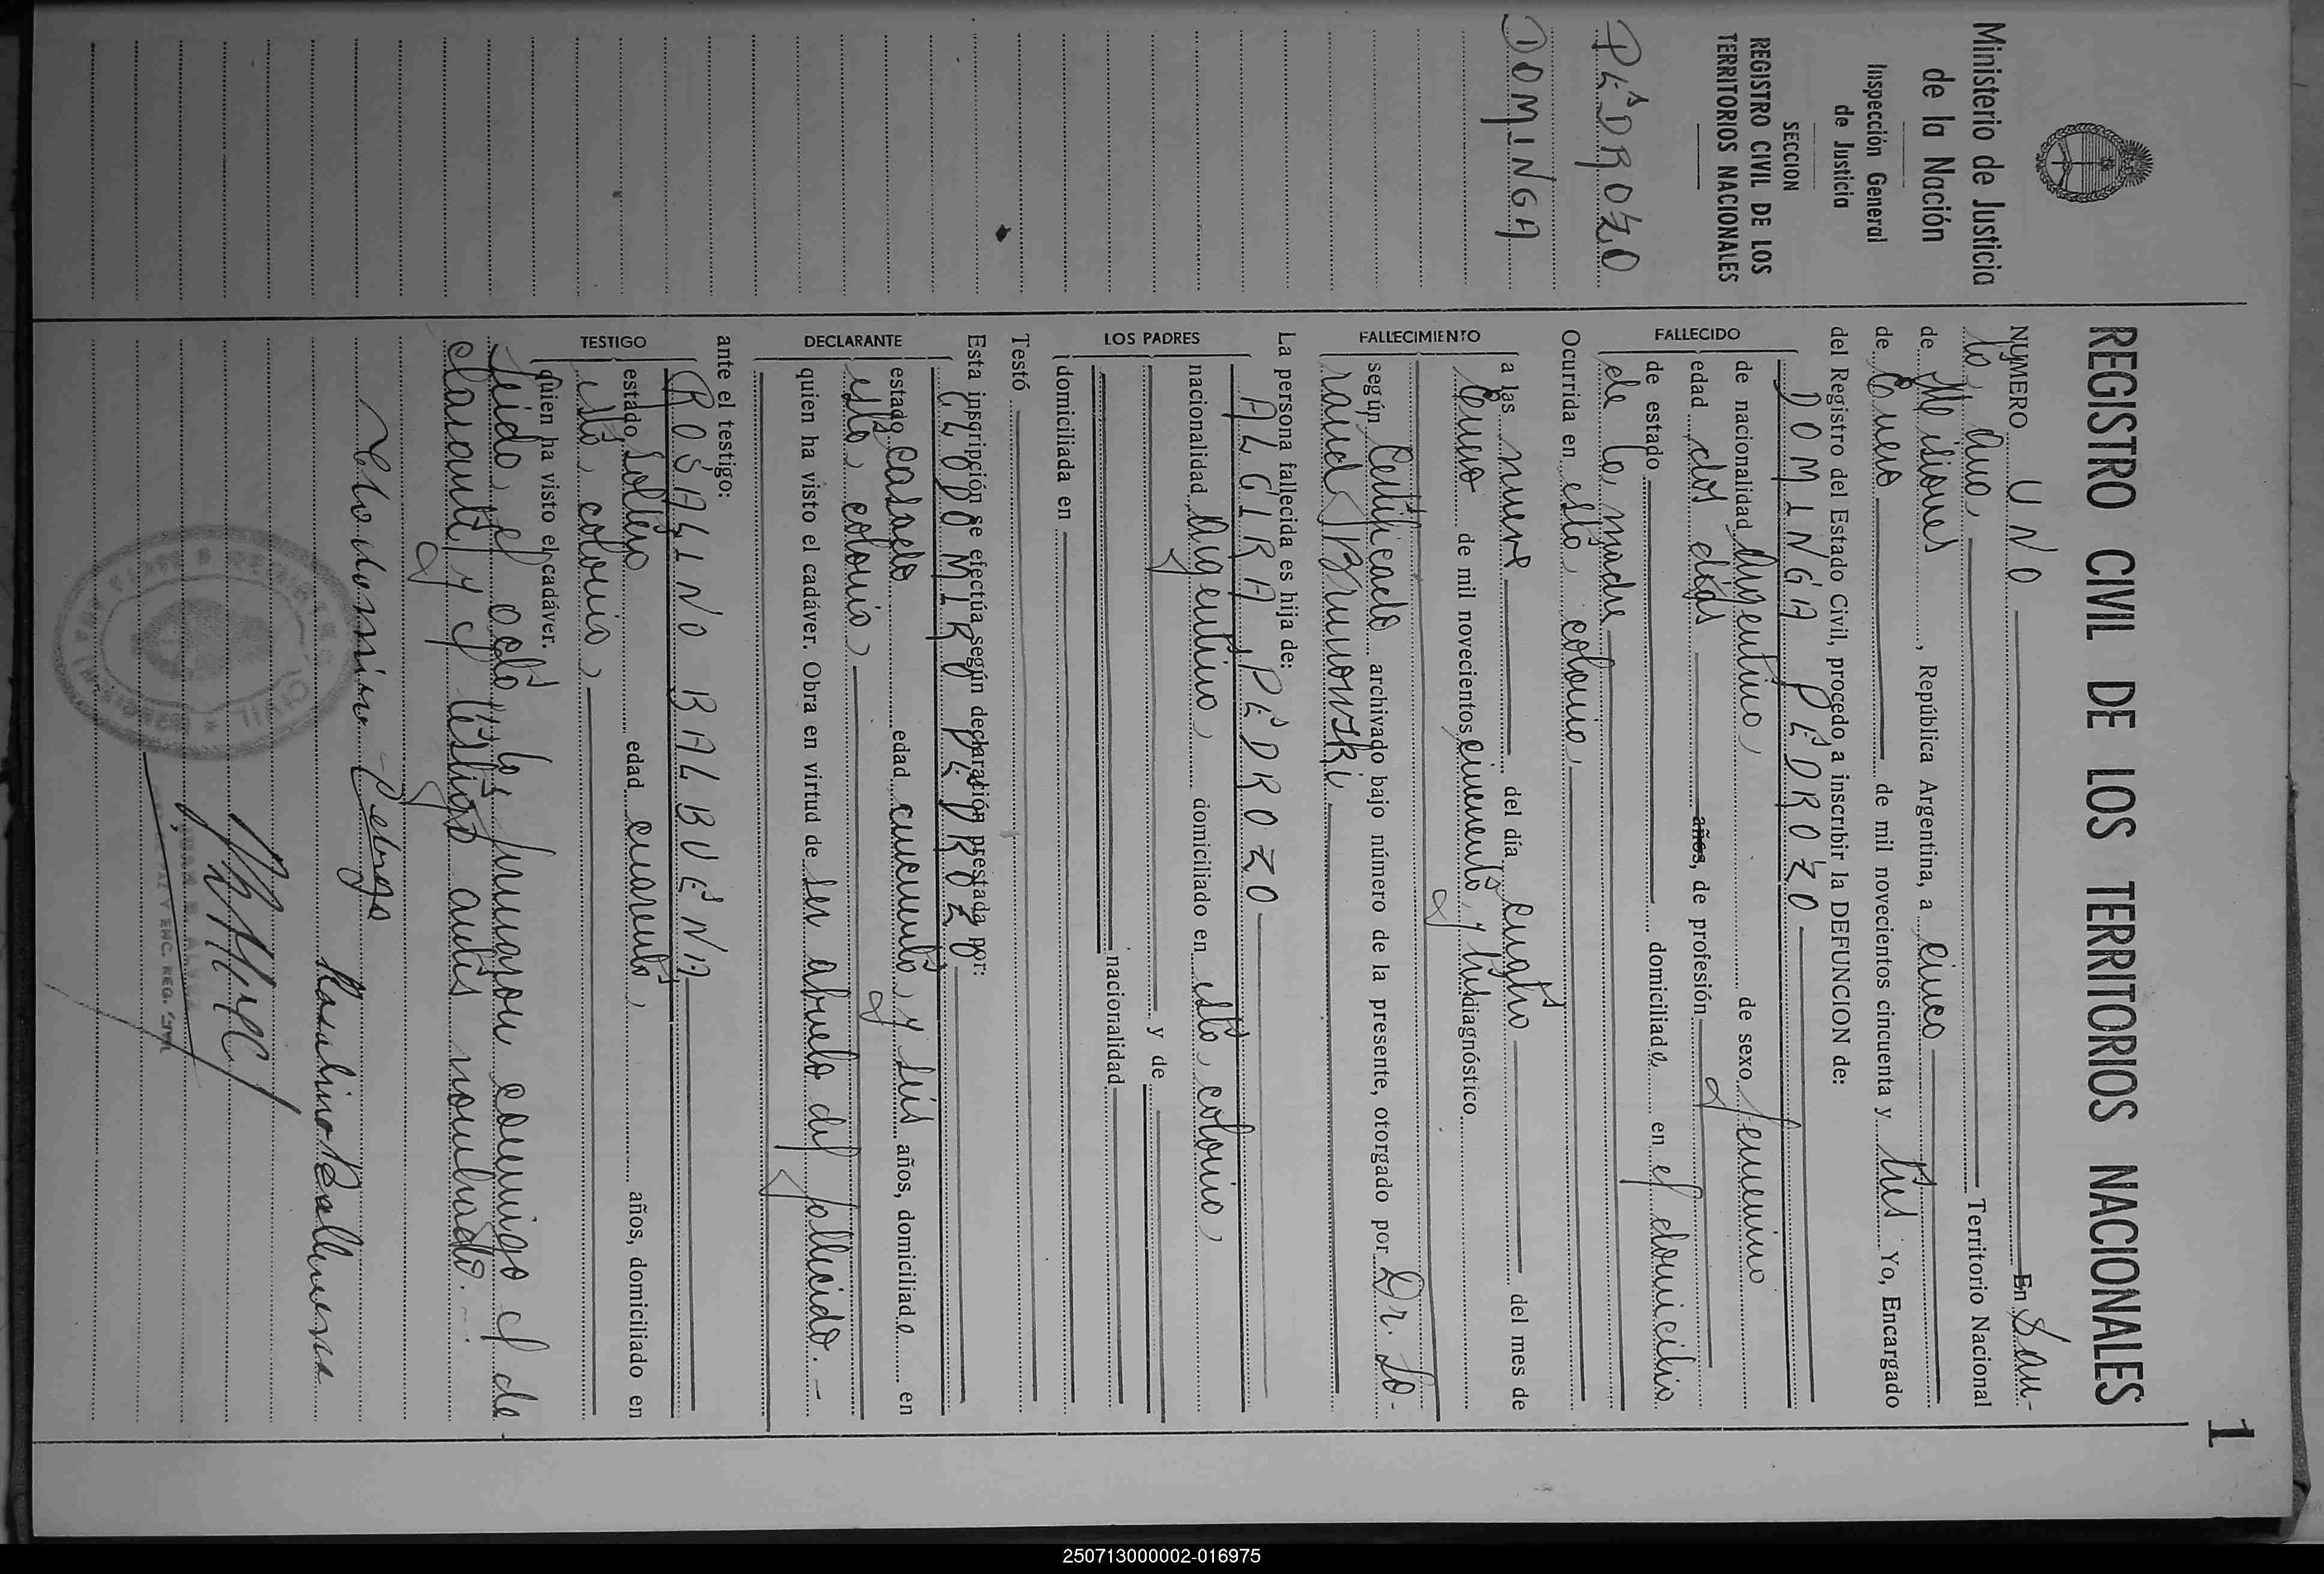 1
Ministerio de Justicia
de la Nación
Inspección General
de Justicia
SECCION
REGISTRO CIVIL DE LOS
TERRITORIOS NACIONALES
PEDROZO
DOMINGA
REGISTRO CIVIL DE LOS TERRITORIOS NACIONALES
NUMERO UNO En San-
ta Ana, Territorio Nacional
de Misiones, República Argentina, a cinco
de Enero de mil novecientos cincuenta y tres Yo, Encargado
del Registro del Estado Civil, procedo a inscribir la DEFUNCION de:
FALLECIDO
DOMINGA PEDROZO
de nacionalidad Argentino, de sexo femenino
edad dos días años, de profesión
de estado domiciliade en el domicilio
de la madre
Ocurrida en esta colonia,
FALLECIMIENTO
a las nueve del día cuatro del mes de
Enero de mil novecientos cincuenta y tres diagnóstico
según Certificado archivado bajo número de la presente, otorgado por Dr. Lo-
La persona fallecida es hija de:
LOS PADRES
ALGIRA PEDROZO
nacionalidad Argentino, domiciliado en esta colonia,
y de
nacionalidad
domiciliada en
Testó
Esta inscripción se efectúa según declaración prestada por:
DECLARANTE
CLODOMIRO PEDROZO
estado casado edad cincuenta y seis años, domiciliado en
esta colonia,
quien ha visto el cadáver. Obra en virtud de ser abuelo del fallecido.-
ante el testigo:
TESTIGO
ROSALINO BALBUENA
estado soltero edad cuarenta, años, domiciliado en
esta colonia,
quien ha visto el cadáver.
Leida el acta la firmaron conmigo el de-
clarante y el testigo antes nombrado.-
250713000002-016975